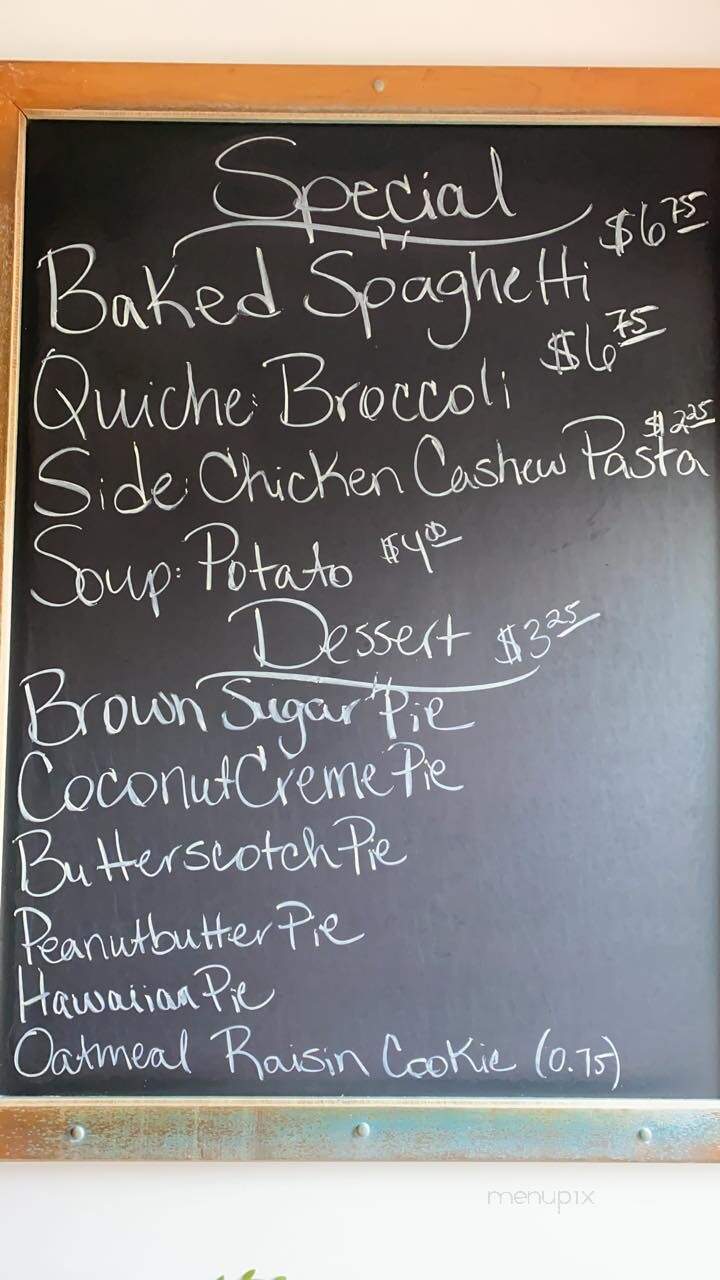 Special
Baked Spaghetti $6.75
Quiche: Broccoli $6.75
Side: Chicken Cashew Pasta $2.25
Soup: Potato $4.00
Dessert $3.25
Brown Sugar Pie
Coconut Creme Pie
Butterscotch Pie
Peanutbutter Pie
Hawaiian Pie
Oatmeal Raisin Cookie (0.75)
menupix